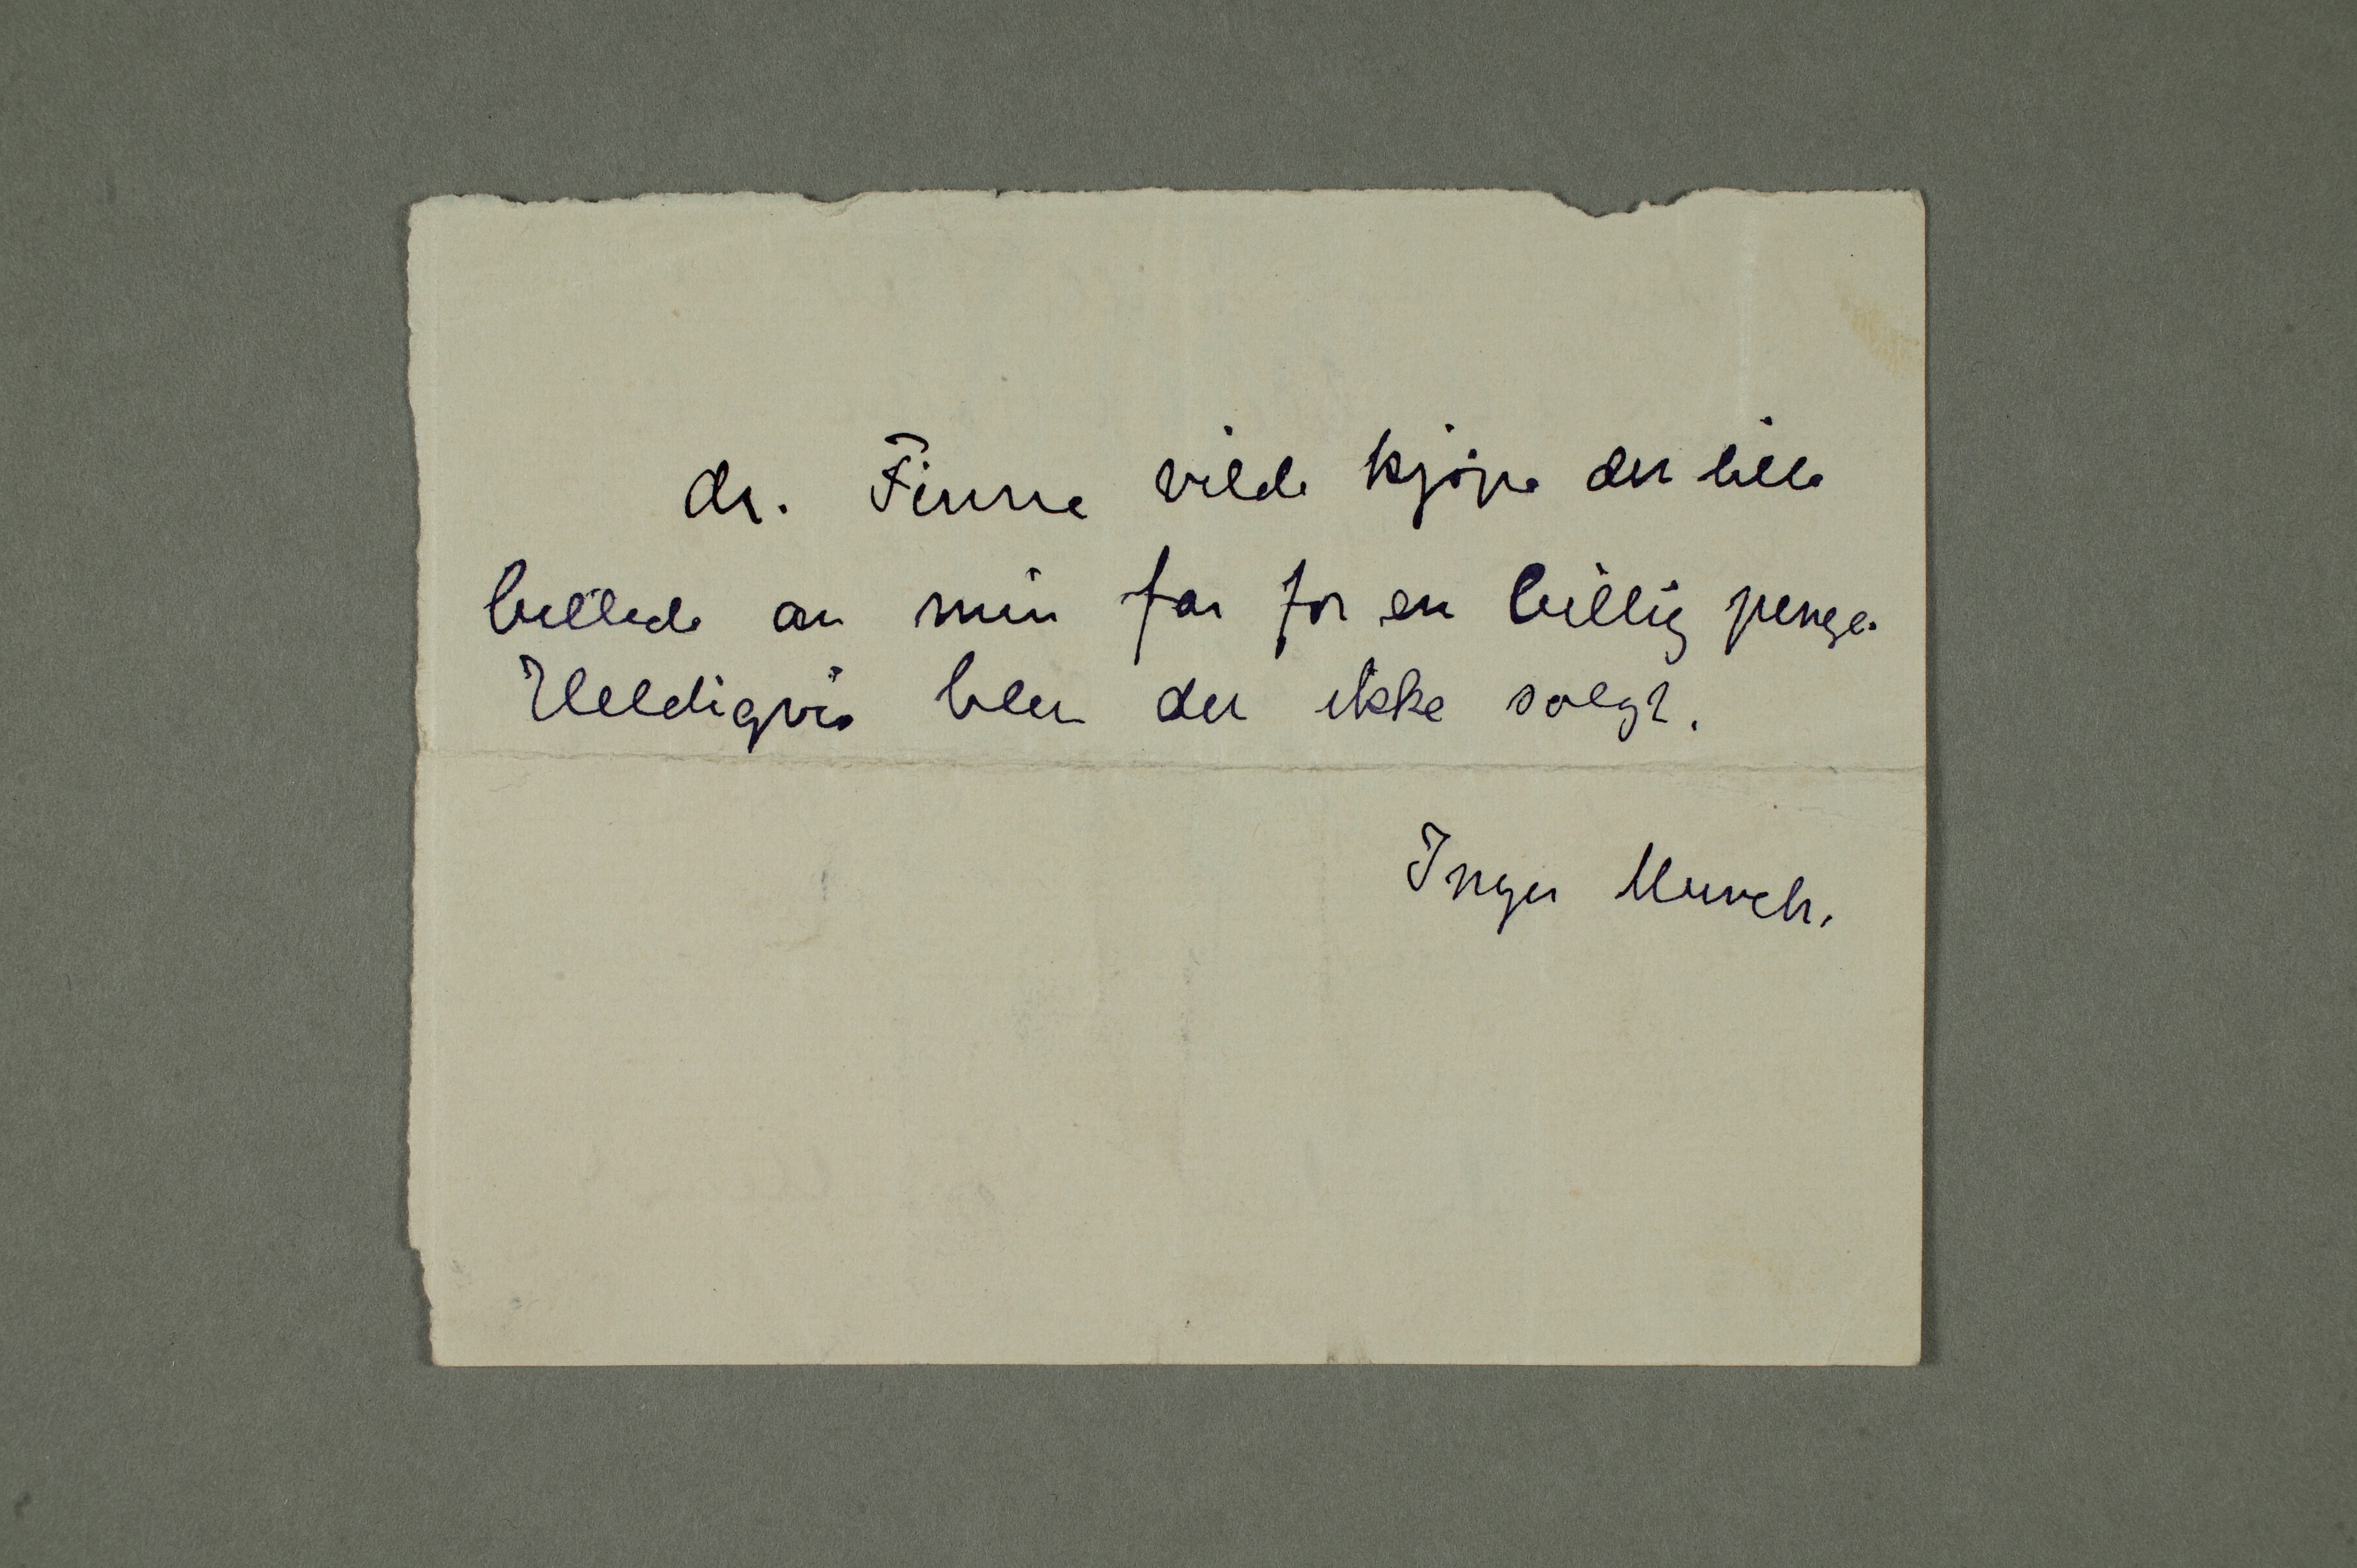 dr. Finne vilde kjöpe det lille
billede av min far for en billig penge.
Heldigvis blev det ikke solgt.
Inger Munch.